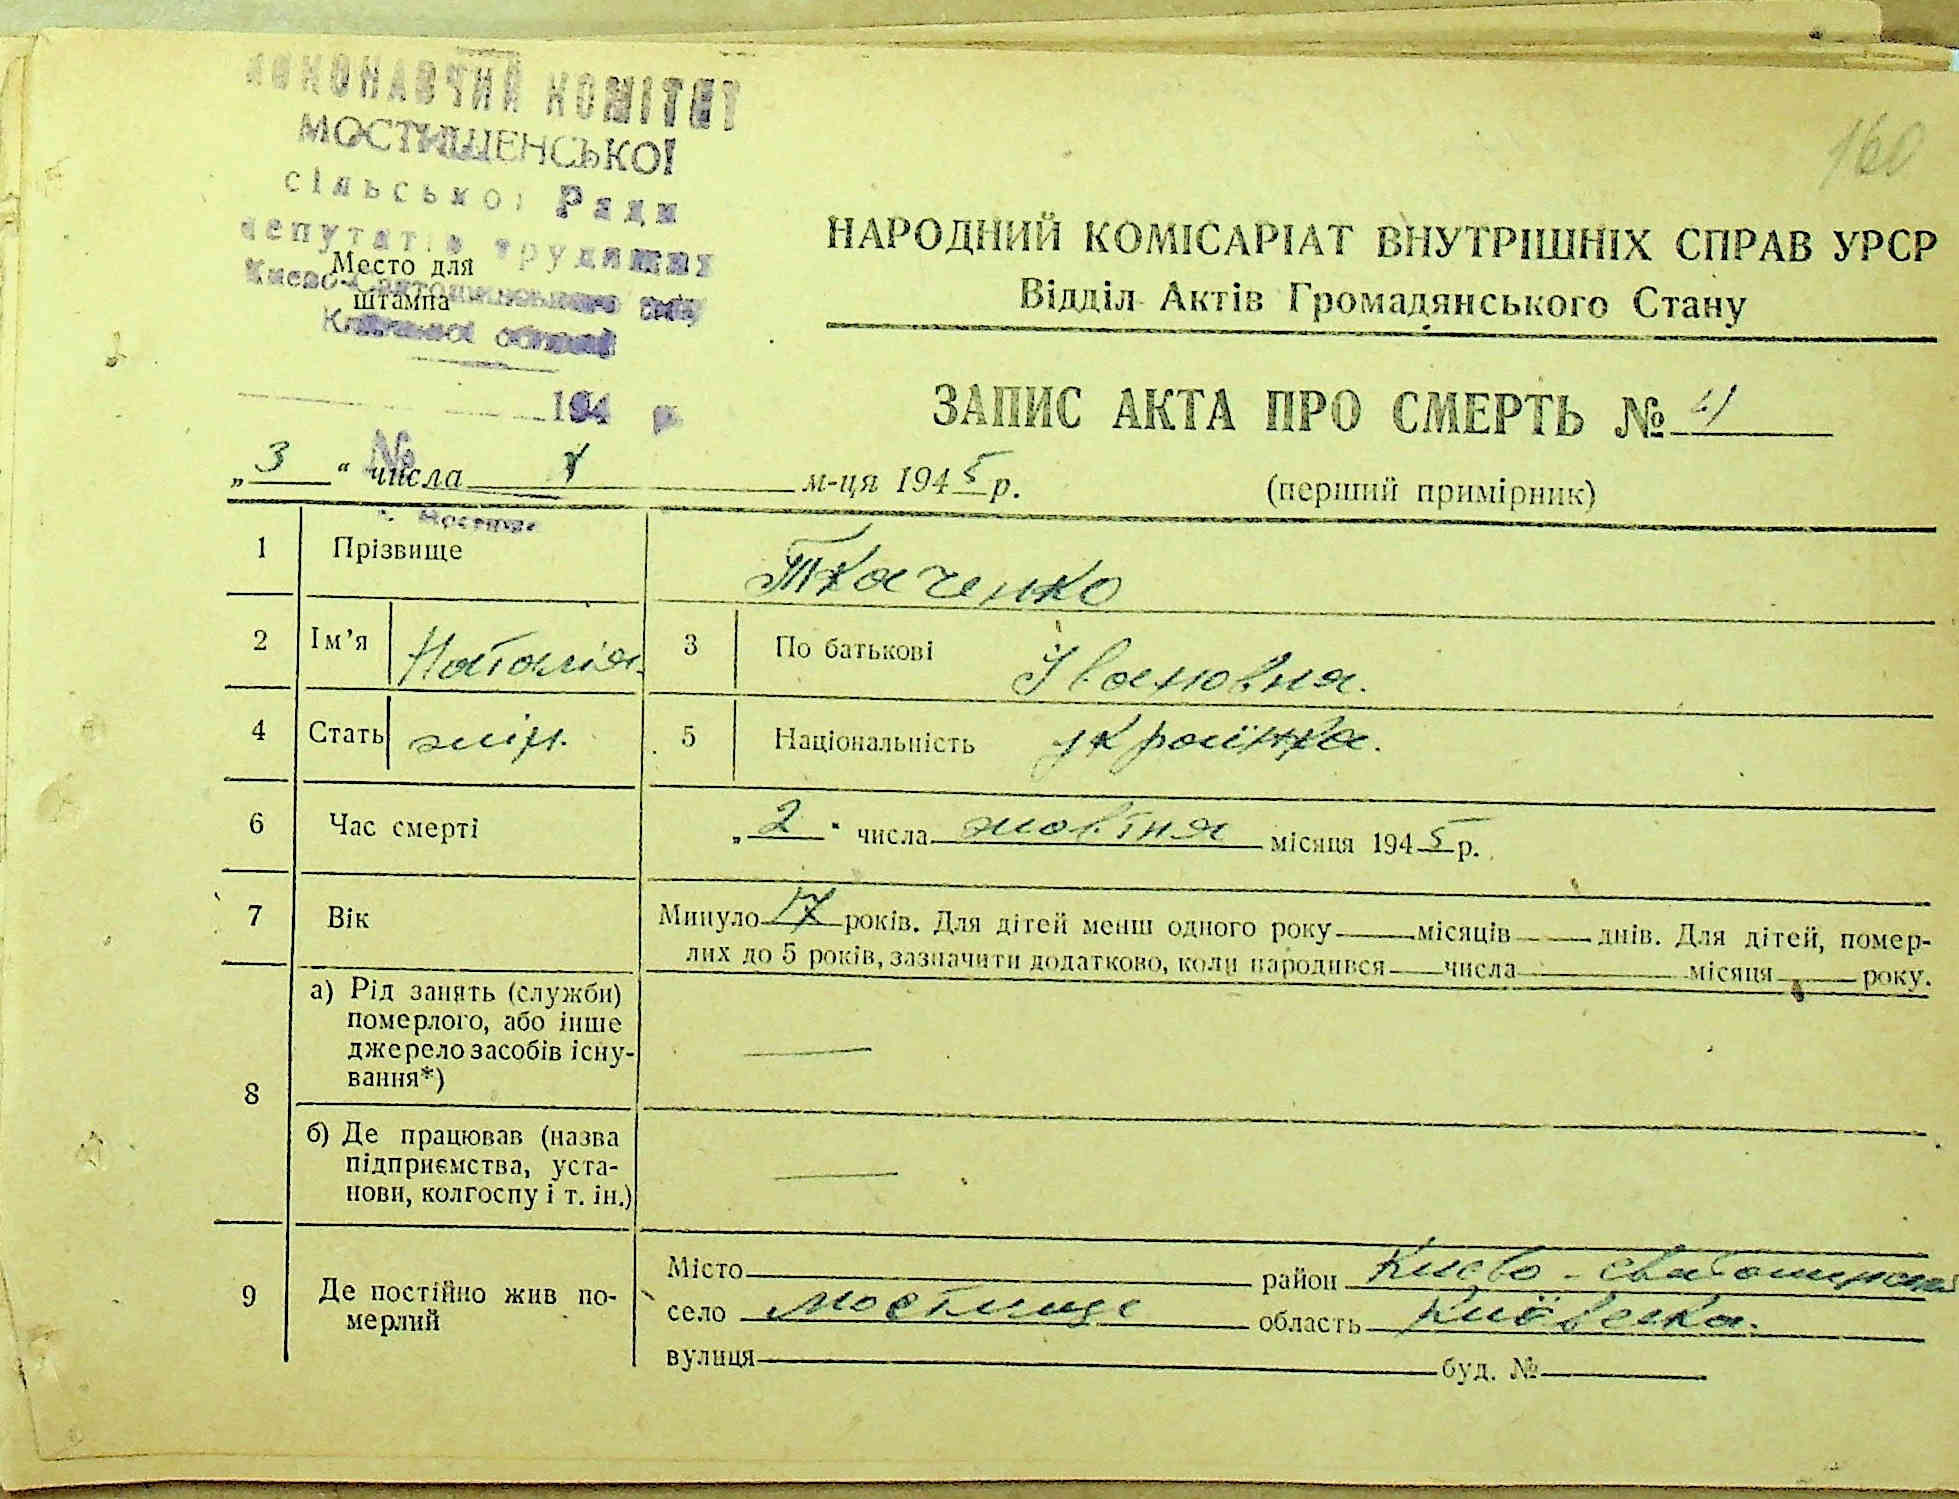 ВИКОНАВЧИЙ КОМІТЕТ
МОСТИЩЕНСЬКОЇ
сільської Ради
депутатів трудящих
Києво-Святошинського р-ну
Київської області
Место для
штампа
194 р.
№
с. Мостище
160
НАРОДНИЙ КОМІСАРІАТ ВНУТРІШНІХ СПРАВ УРСР
Відділ Актів Громадянського Стану
ЗАПИС АКТА ПРО СМЕРТЬ №
„3“ числа м-ця 1945 р.
(перший примірник)
1 Прізвище Ткаченко
2 Ім’я Наталія 3 По батькові Івановна.
4 Стать жін. 5 Національність українка.
6 Час смерті „2“ числа жовтня місяця 1945 р.
7 Вік Минуло 17 років. Для дітей менш одного року місяців днів. Для дітей, помер-
лих до 5 років, зазначити додатково, коли народився числа місяця року.
8 а) Рід занять (служби)
померлого, або інше
джерело засобів існу-
вання*) —
б) Де працював (назва
підприємства, уста-
нови, колгоспу і т. ін.) —
9 Де постійно жив по-
мерлий
Місто район Києво-Святошинський
село Мостище область Київська.
вулиця буд. №